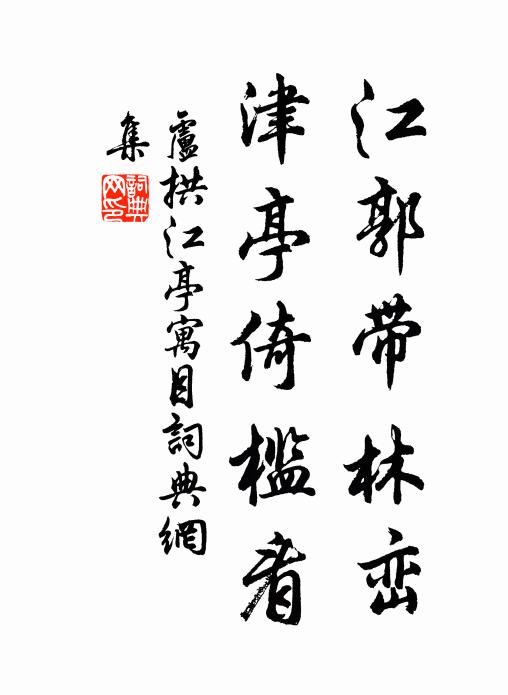 江郭带林峦
津亭倚檻看
盧拱江亭寓目詞典網
集
詞典网印